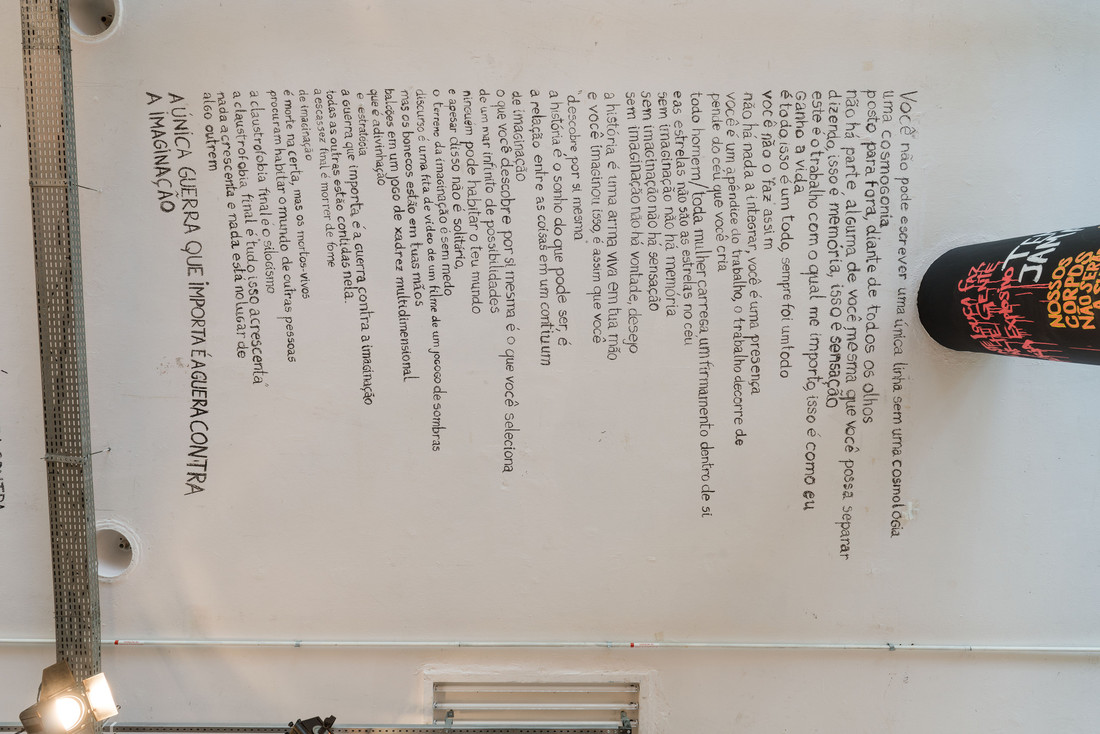 Você não pode escrever uma única linha sem uma cosmologia
uma cosmogonia
posto para fora, diante de todos os olhos
não há parte alguma de você mesma que você possa separar
dizendo, isso é memória, isso é sensação
este é o trabalho com o qual me importo, isso é como eu
Ganho a vida
é todo, isso é um todo, sempre foi um todo
você não o "faz" assim
não há nada a integrar, você é uma presença
você é um apêndice do trabalho, o trabalho decorre de
pende do céu que você cria
todo homem / toda mulher carrega um firmamento dentro de si
e as estrelas não são as estrelas no céu
sem imaginação não há memória
sem imaginação não há sensação
sem imaginação não há vontade, desejo
a história é uma arma viva em tua mão
e você imaginou isso, é assim que você
"descobre por si mesma"
a história é o sonho do que pode ser, é
a relação entre as coisas em um contituum
de imaginação
o que você descobre por si mesma é o que você seleciona
de um mar infinito de possibilidades
ninguém pode habitar o teu mundo
e apesar disso não é solitário,
o terreno da imaginação é sem medo
discurso é uma fita de vídeo de um filme de um joogo de sombras
mas os bonecos estão em tuas mãos
balões em um jogo de xadrez multidimensional
que é adivinhação
e estratégia
a guerra que importa é a guerra contra a imaginação
todas as outras estão contidas nela.
a escassez final é morrer de fome
de imaginação
é morte na certa, mas os mortos-vivos
procuram habitar o mundo de outras pessoas
a claustrofobia final é o silogismo
a claustrofobia final é "tudo isso acrescenta"
nada acrescenta e nada está no lugar de
algo outrem
A ÚNICA GUERRA QUE IMPORTA É A GUERA CONTRA
A IMAGINAÇÃO
NOSSOS
CORPOS
NÃO SERÃO